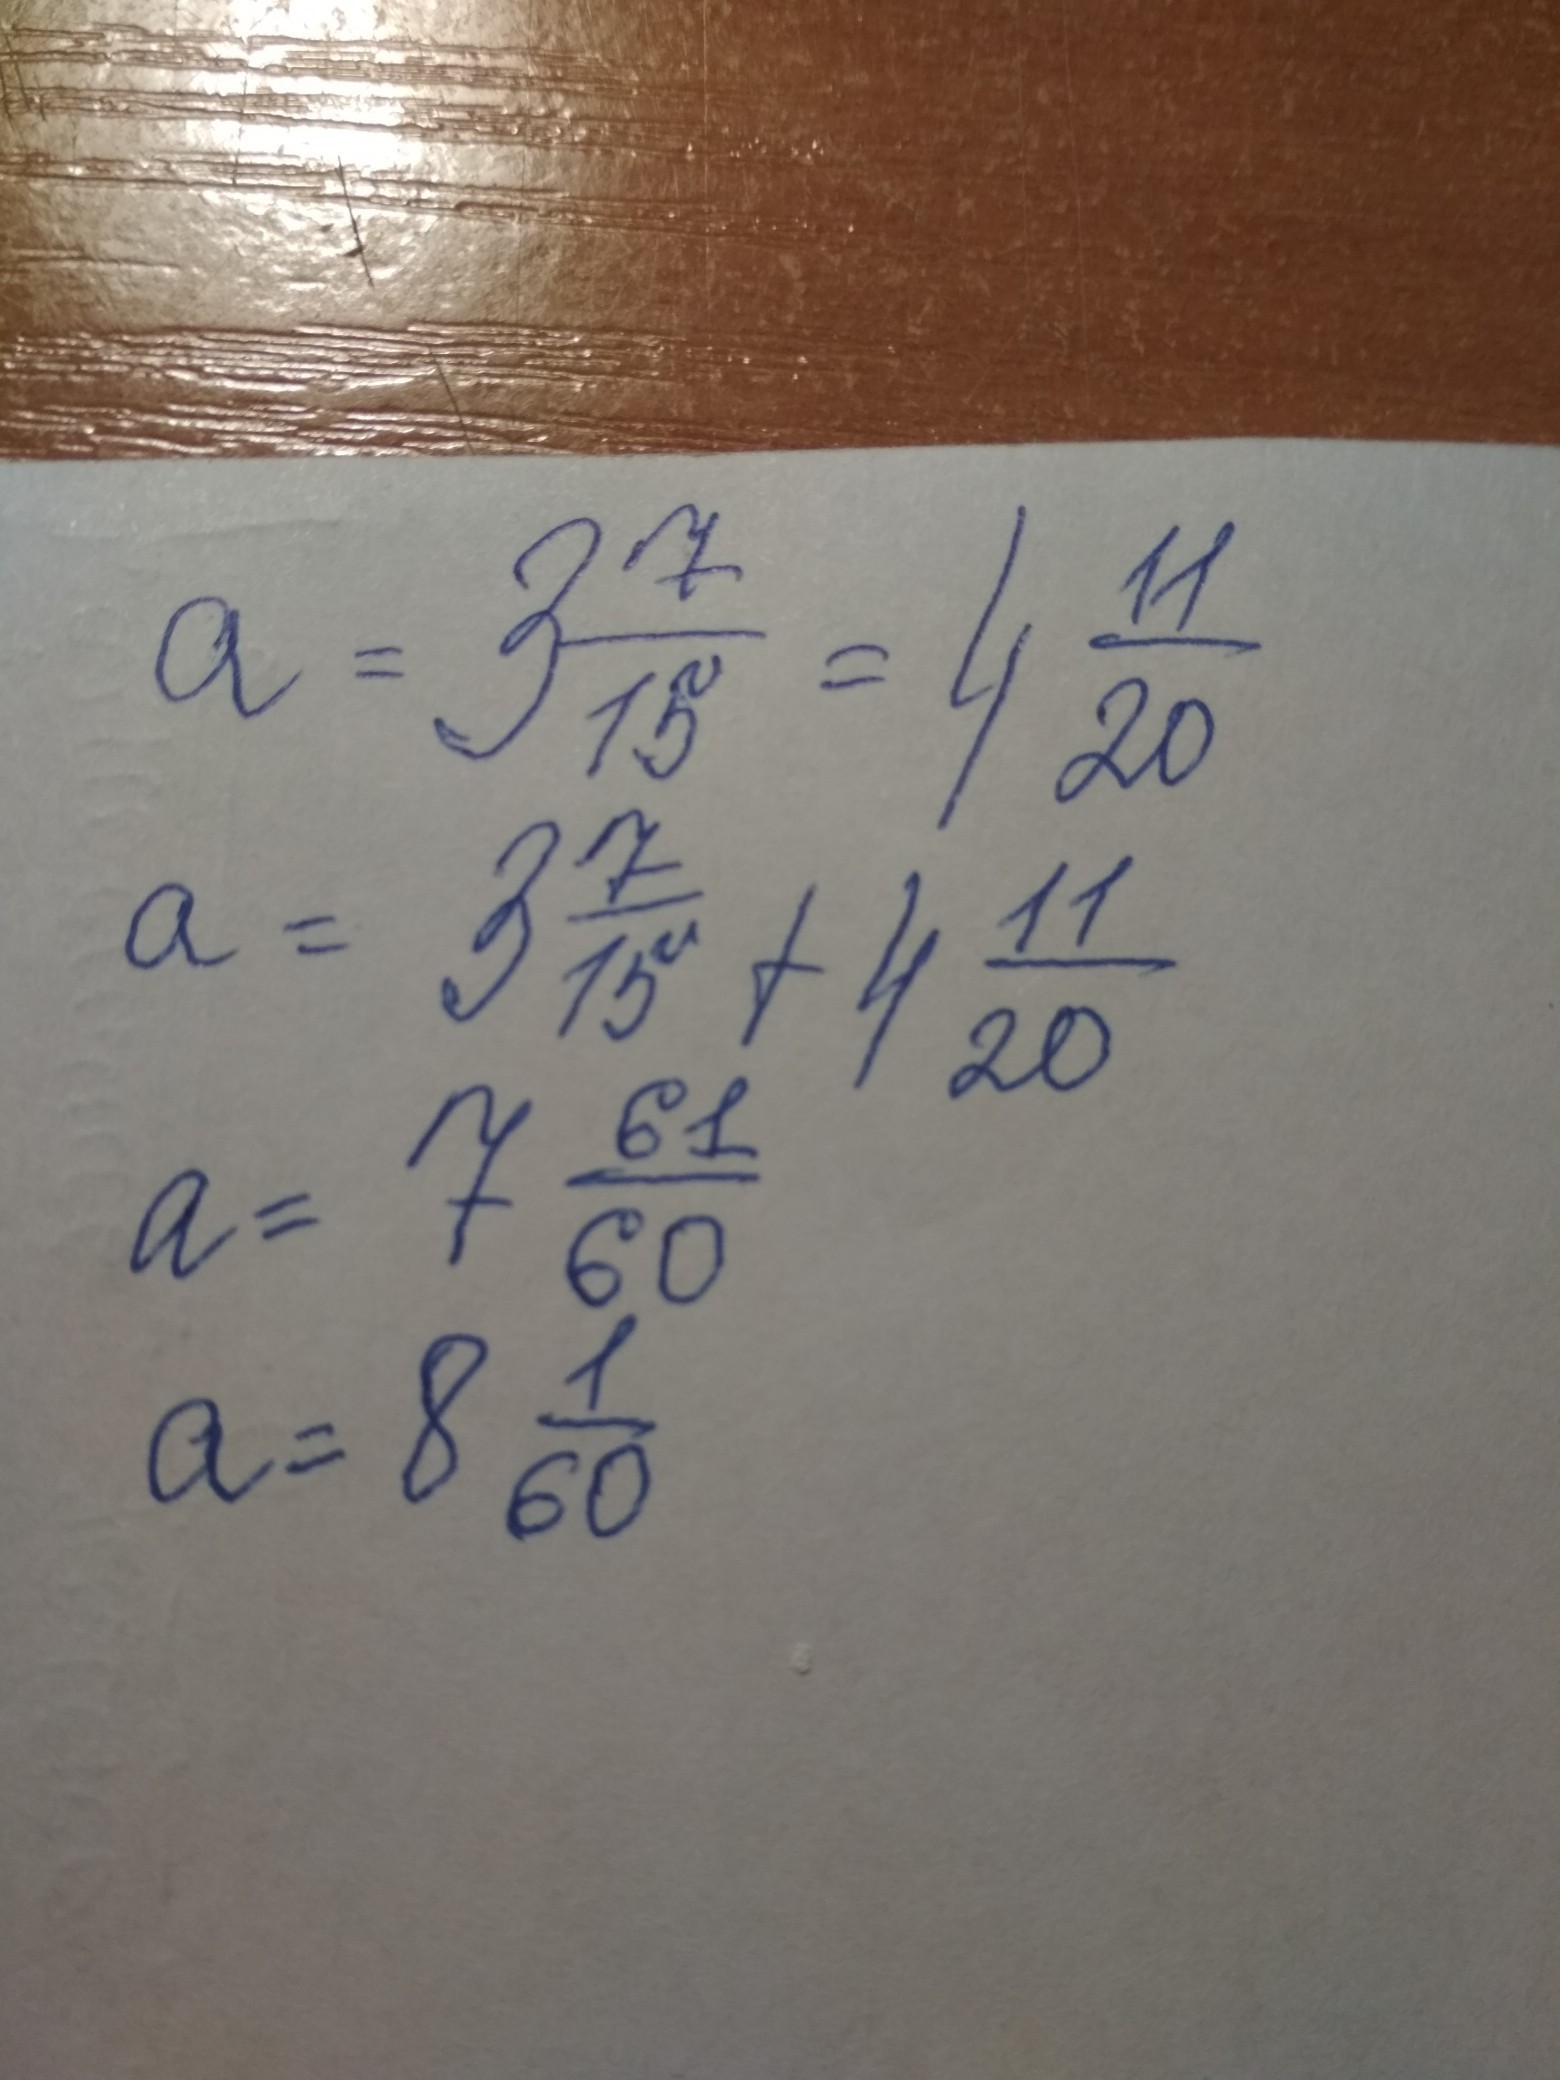 a = 3 7/15 = 4 11/20
a = 3 7/15 + 4 11/20
a = 7 61/60
a = 8 1/60